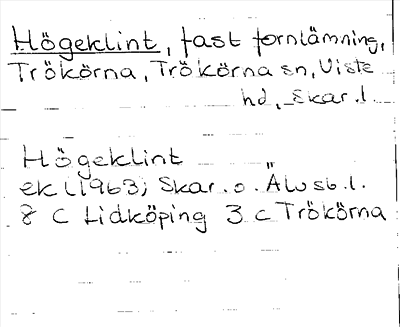 Högeklint, fast fornlämning,
Trökörna, Trökörna sn, Viste
hd, Skar. l
Högeklint
ek (1963) Skar. o. Älvsb. l.
8 C Lidköping 3 c Trökörna